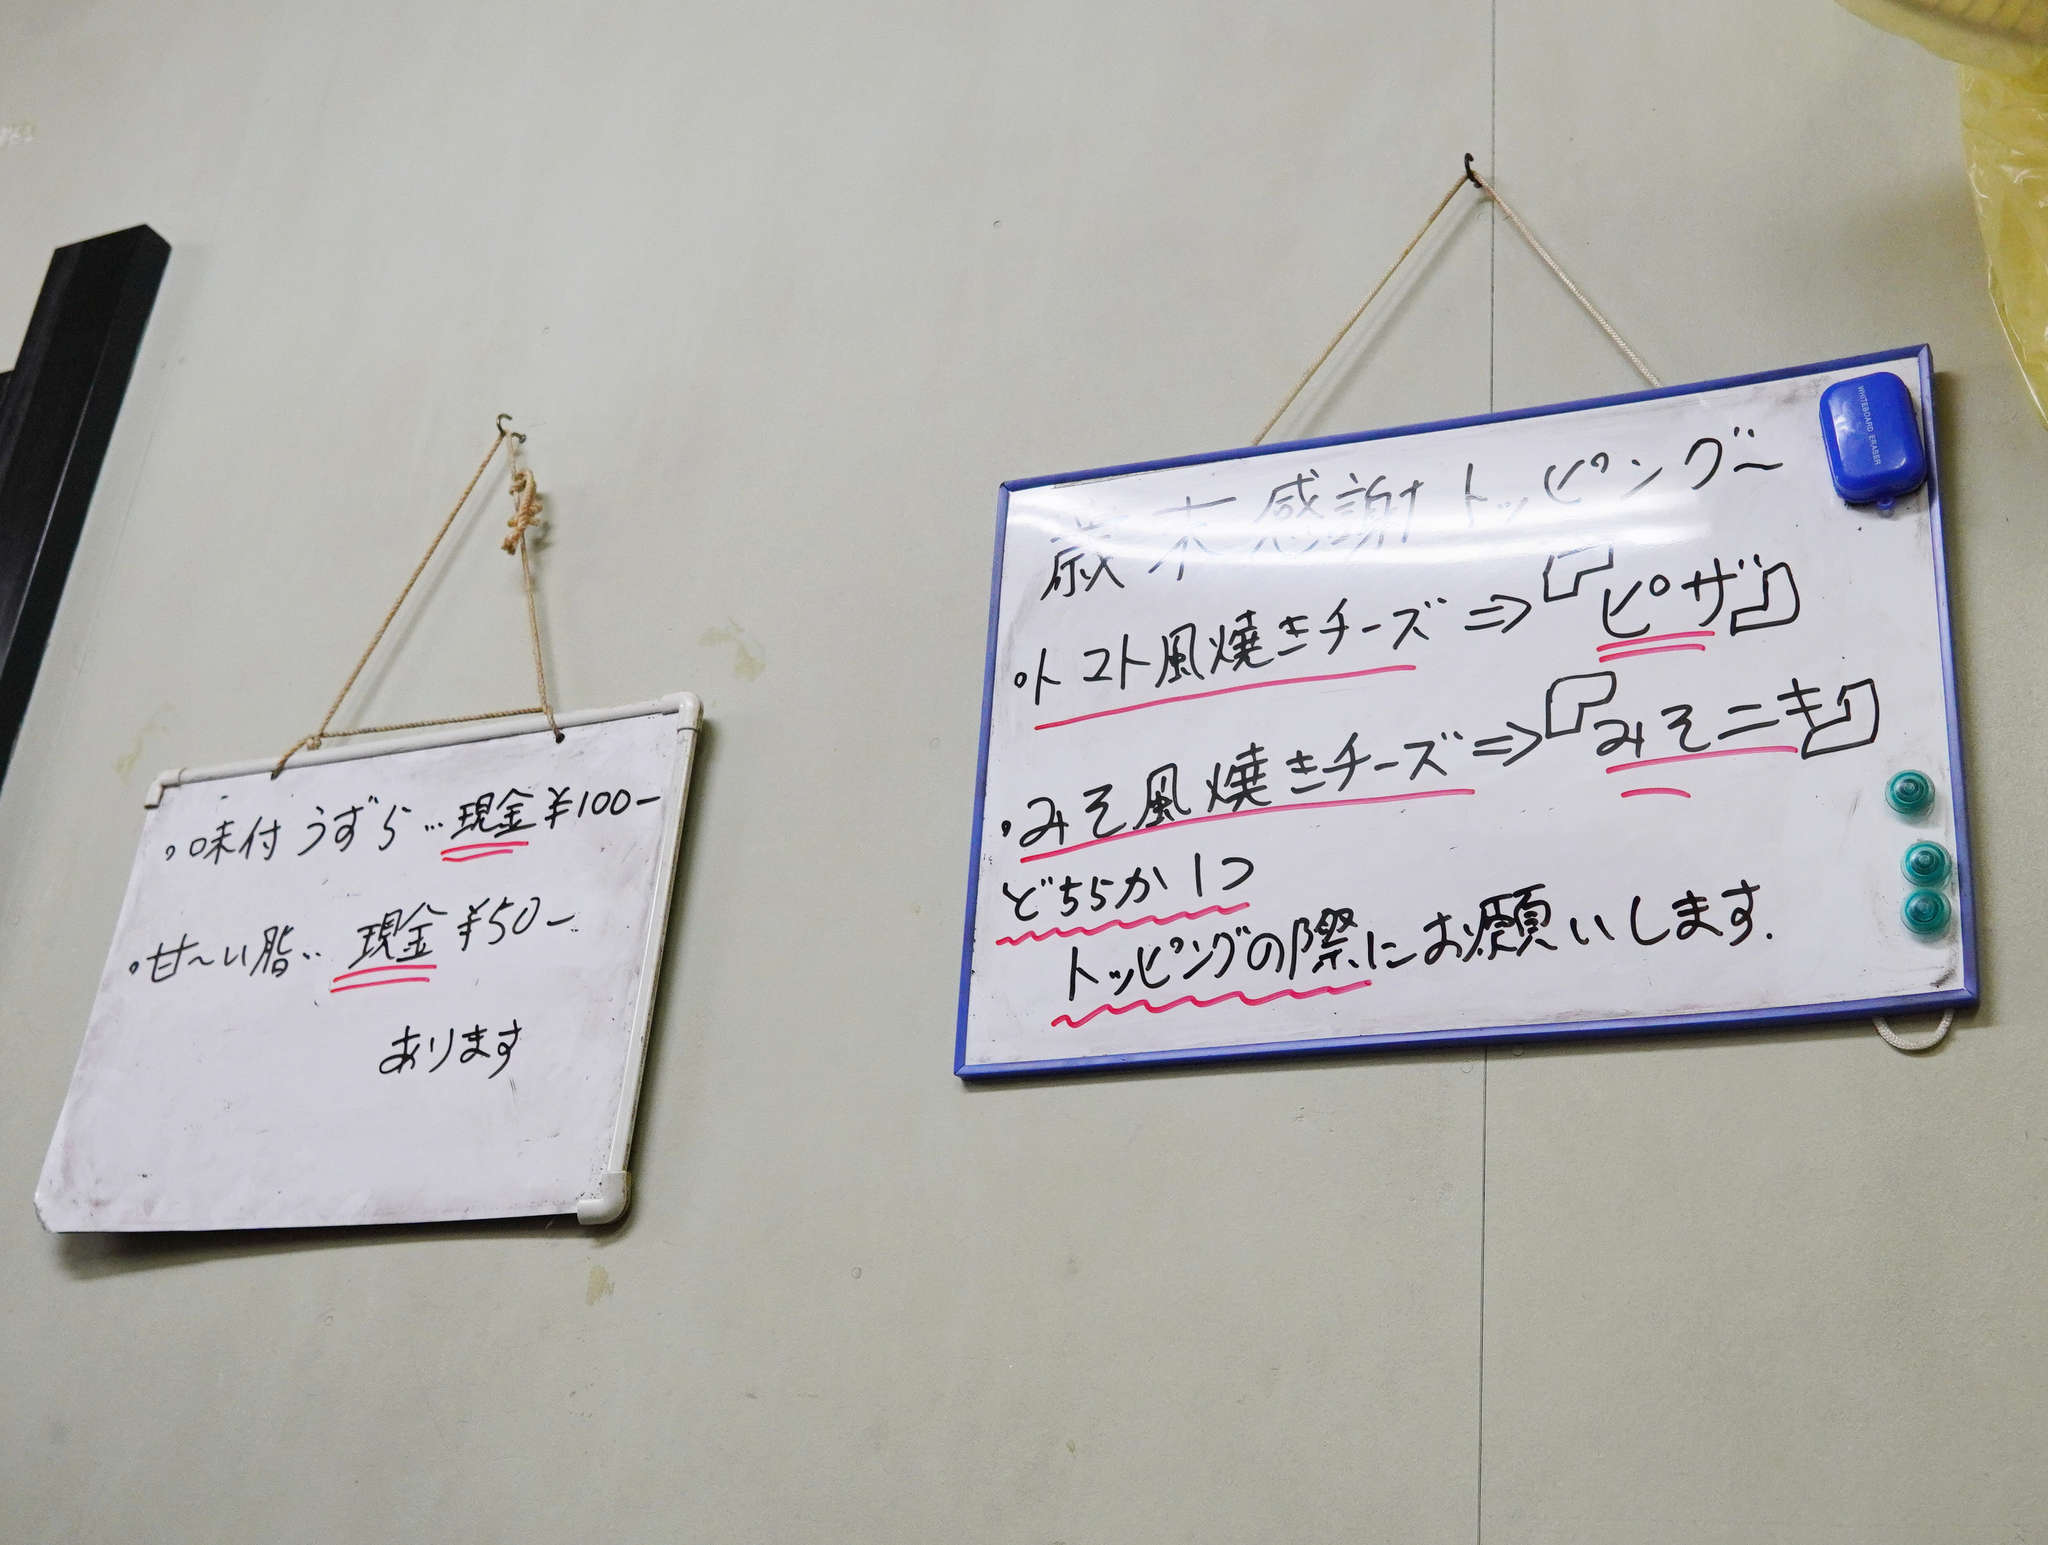 ・味付うずら…現金¥100-
・甘~い脂‥現金¥50-
あります
WHITEBOARD ERASER
歳末感謝トッピング~
・トマト風焼きチーズ⇒『ピザ』
・みそ風焼きチーズ⇒『みそニキ』
どちらか1つ
トッピングの際にお願いします.